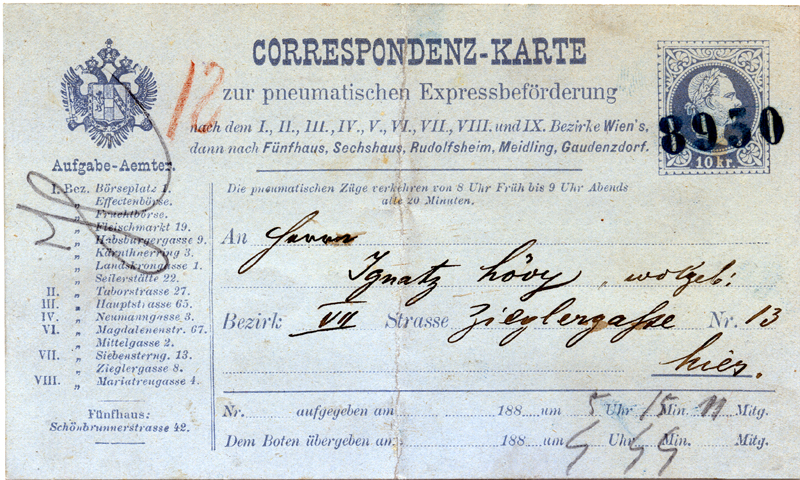 CORRESPONDENZ-KARTE
12
zur pneumatischen Expressbeförderung
nach dem I., II., III., IV., V., VI., VII., VIII. und IX. Bezirke Wien's,
dann nach Fünfhaus, Sechshaus, Rudolfsheim, Meidling, Gaudenzdorf.
8950
10 kr.
Aufgabe-Aemter.
I. Bez. Börseplatz 1.
„ Effectenbörse.
„ Fruchtbörse.
„ Fleischmarkt 19.
„ Habsburgergasse 9.
„ Kärnthnerring 3.
„ Landskrongasse 1.
„ Seilerstätte 22.
II. „ Taborstrasse 27.
III. „ Hauptstrasse 65.
IV. „ Neumanngasse 3.
VI. „ Magdalenenstr. 67.
„ Mittelgasse 2.
VII. „ Siebensterng. 13.
„ Zieglergasse 8.
VIII. „ Mariatreugasse 4.
Fünfhaus:
Schönbrunnerstrasse 42.
Die pneumatischen Züge verkehren von 8 Uhr Früh bis 9 Uhr Abends
alle 20 Minuten.
An Herrn
Ignatz Lövy, wolgeb:
Bezirk VII Strasse Zieglergasse Nr. 13
hier.
Nr. aufgegeben am 188 um 5 Uhr 15 Min. N Mitg.
Dem Boten übergeben am 188 um Uhr Min. Mitg.